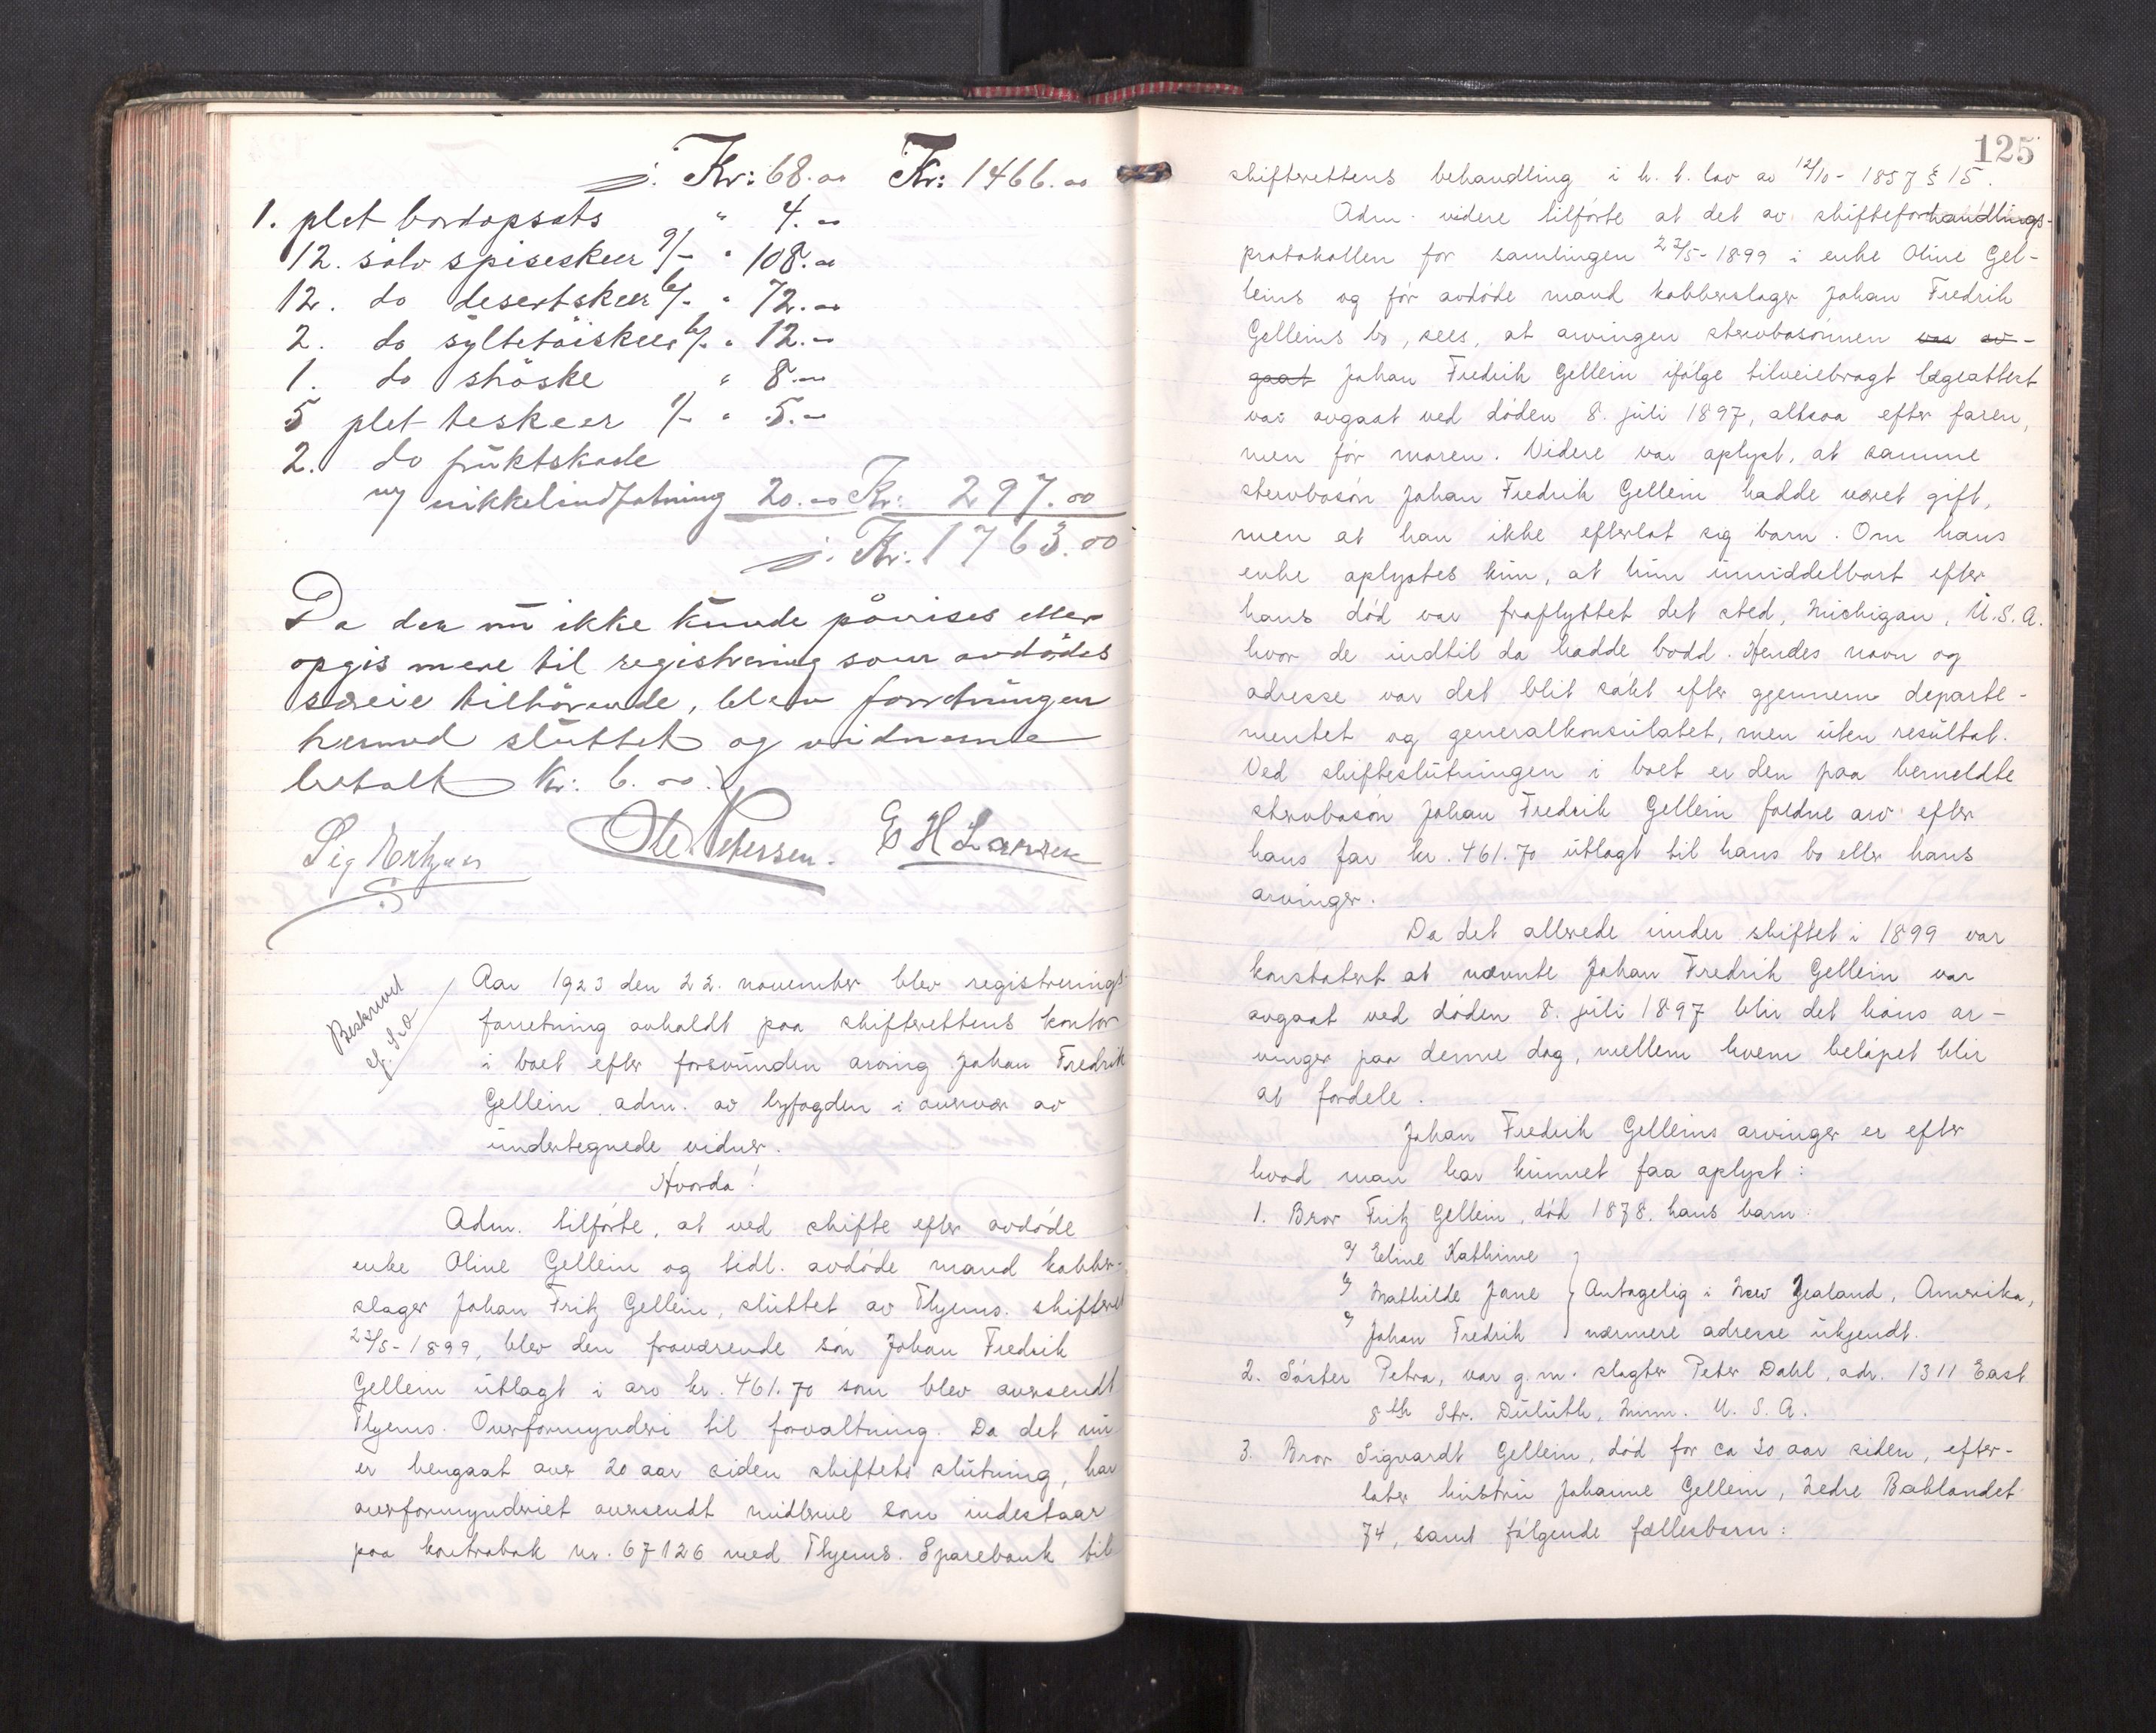 j. Kr: 68.00 Kr: 1466.00
1. plet bordopsats " 4.00
12. sölv spiseskeer 9/- " 108.00
12. do desertskeer 6/- " 72.00
2. do syltetöiskeer 6/- " 12.00
1. do ströske " 8.00
5 plet teskeer 1/- " 5.00
2. do früktskaale
m/ nikkelindfatning 20.00 Kr: 297.00
j. Kr: 1763.00
Da der nu ikke kunde påvises eller
opgis mere til registrering som avdödes
særeie tilhörende, blev forretningen
hermed sluttet og vidnerne
betalt Kr: 6.00.
Ole Petersen. E H Larsen
Beskrevet
Aar 1923 den 22. november blev registrerings-
forretning avholdt paa skifterettens kontor
i boet efter forsvunden arving Johan Fredrik
Gellein adm. av byfogden i overvær av
undertegnede vidner.
Hvorda!
Adm. tilförte, at ved skifte efter avdöde
enke Oline Gellein og tidl. avdöde mand kobber-
slager Johan Fritz Gellein, sluttet av Thjems. skifteret
22/5-1899, blev den fraværende sön Johan Fredrik
Gellein utlagt i arv kr. 461.70 som blev oversendt
Thjems. Overformynderi til forvaltning. Da det nu
er hengaat over 20 aar siden skiftets slutning, har
overformynderiet oversendt midlerne som indestaar
paa kontrabok nr. 67126 med Thjems. Sparebank til
125
skifterettens behandling i h. t. lov av 12/10-1857 § 15.
Adm. videre tilförte at det av skifteforhandlings-
protokollen for samlingen 22/5-1899 i enke Oline Gel-
leins og för avdöde mand kobberslager Johan Fredrik
Gelleins bo, sees, at arvingen stervbosönnen var av-
gaat Johan Fredrik Gellein ifölge tilveiebragt lægeattest
var avgaat ved döden 8. juli 1897, altsaa efter faren,
men för moren. Videre var oplyst, at samme
stervbosön Johan Fredrik Gellein hadde været gift,
men at han ikke efterlot sig barn. Om hans
enke oplystes kun, at hun umiddelbart efter
hans död var fraflyttet det sted, Michigan, U.S.A.
hvor de indtil da hadde bodd. Hendes navn og
adresse var det blit sökt efter gjennem departe-
mentet og generalkonsulatet, men uten resultat.
Ved skifteslutningen i boet er den paa bemeldte
stervbosön Johan Fredrik Gellein faldne arv efter
hans far kr. 461.70 utlagt til hans bo eller hans
arvinger.
Da det allerede under skiftet i 1899 var
konstatert at nævnte Johan Fredrik Gellein var
avgaat ved döden 8. juli 1897 blir det hans ar-
vinger paa denne dag, mellem hvem belöpet blir
at fordele.
Johan Fredrik Gelleins arvinger er efter
hvad man har kunnet faa oplyst:
1. Bror Fritz Gellein, död 1878. hans barn:
a/ Eline Kathrine
b/ Mathilde Jane } Antagelig i New Zealand, Amerika,
c/ Johan Fredrik nærmere adresse ukjendt.
2. Söster Petra, var g. m. slagter Peter Dahl, adr. 1311 East
8th Str. Duluth, Minn. U. S. A.
3. Bror Sigvardt Gellein, död for ca 20 aar siden, efter-
later hustru Johanne Gellein, Nedre Baklandet
74, samt fölgende fællesbarn: